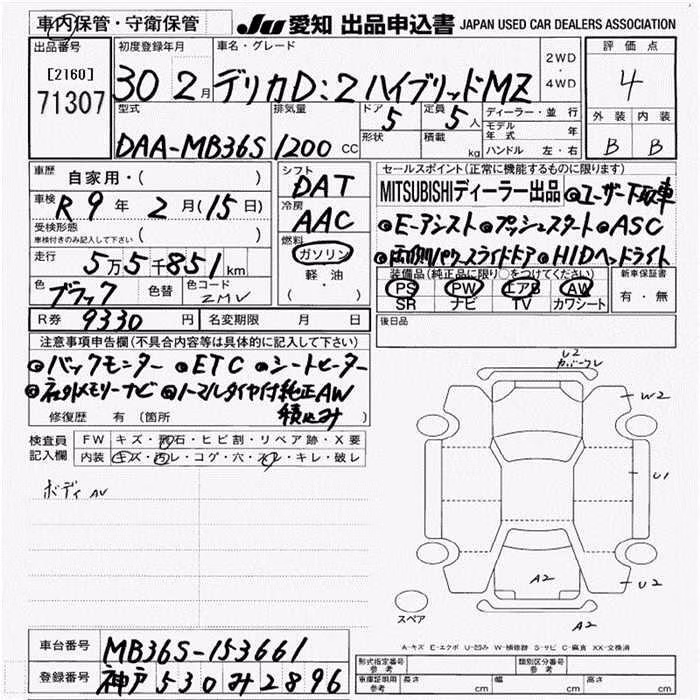 車内保管・守衛保管
JU 愛知 出品申込書 JAPAN USED CAR DEALERS ASSOCIATION
出品番号
[2160]
71307
初度登録年月
30 2月
車名・グレード
デリカD:2 ハイブリッドMZ
2WD
・
4WD
評価点
4
外装 内装
B B
型式
DAA-MB36S
排気量
1200 CC
ドア
5
形状
定員
5人
積載
kg
ディーラー・並行
モデル年式 年
ハンドル 左・右
車歴
自家用・( )
車検
R9年 2月(15日)
受検形態
車検付きのみ記入して下さい ( )
走行
5万5千851km
色
ブラック
色替
色コード
ZMV
シフト
DAT
冷房
AAC
燃料
ガソリン
軽油
( ・ )
セールスポイント(正常に機能するものに限ります)
MITSUBISHIディーラー出品 ◎ユーザー下取車
◎E-アシスト ◎プッシュスタート ◎ASC
◎両側パワースライドドア ◎HIDヘッドライト
装備品(純正品に限り○をつけてください)
PS PW エアB AW
SR ナビ TV カワシート
新車保証書
有・無
R券 9330円
名変期限 月 日
後日品
注意事項申告欄(不具合内容等は具体的に記入して下さい)
◎バックモニター ◎ETC ◎シートヒーター
◎社外メモリーナビ ◎ノーマルタイヤ付純正AW
積込み
修復歴 有(箇所 )
検査員
記入欄
FW キズ・飛石・ヒビ割・リペア跡・X要
内装 キズ・汚レ・コゲ・穴・スレ・キレ・破レ
ボディ AU
U2
カバーワレ
W2
U1
U2
A2
A2
スペア
A-キズ E-エクボ U-凹み W-補修跡 S-サビ C-腐食 XX-交換済
車台番号
MB36S-153661
登録番号
神戸530み2896
形式指定番号
参考
類別区分番号
参考
車庫証明用
参考
長さ cm 幅 cm 高さ cm